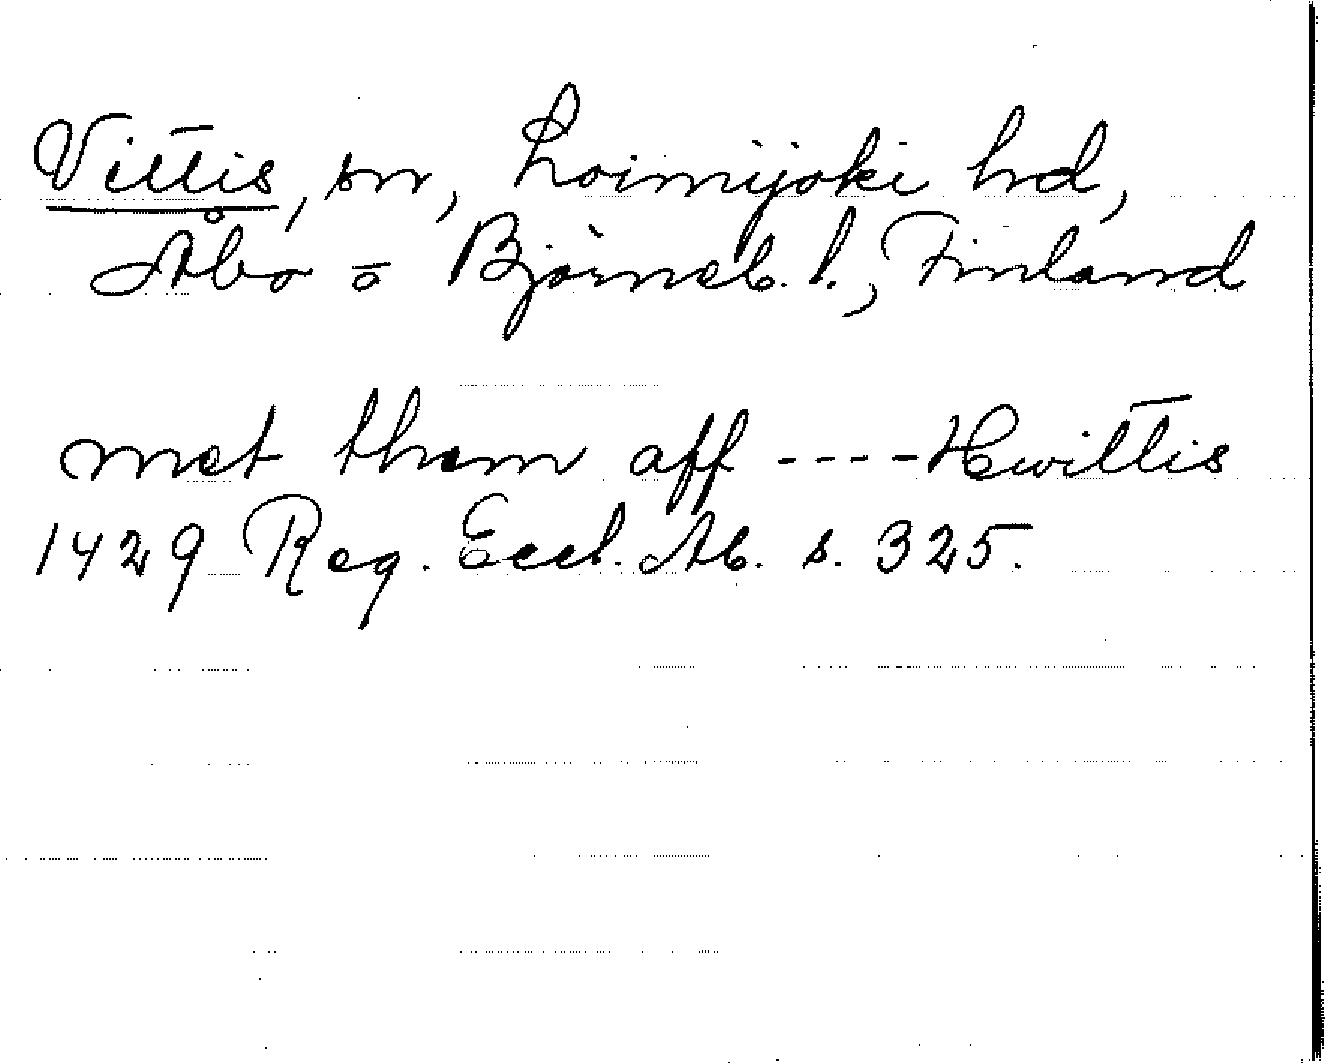 Vittis, sn, Loimijoki hd,
Åbo o Björneb. l., Finland
met them aff ----Hwittis
1429 Reg. Eccl. Ab. s. 325.